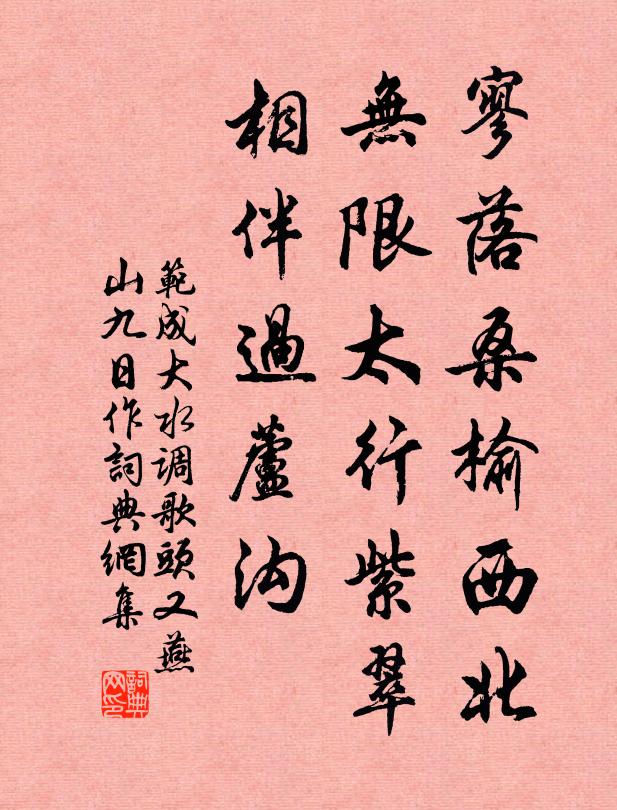 寥落桑榆西北
無限太行紫翠
相伴過蘆沟
範成大水调歌頭又燕
山九日作詞典網集
詞典网印